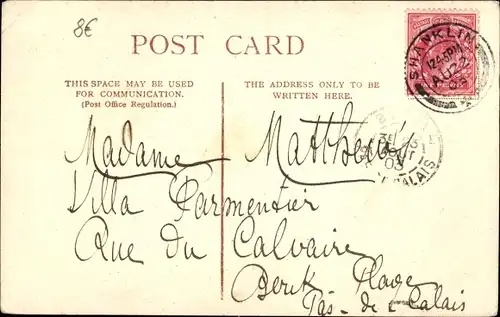 8€
POST CARD
SHANKLIN
12.45 PM
AU 22
THIS SPACE MAY BE USED
FOR COMMUNICATION.
(Post Office Regulation.)
THE ADDRESS ONLY TO BE
WRITTEN HERE.
03
CALAIS
Madame Mattheu
Villa Parmentier
Rue du Calvaire
Berck Plage
Pas-de-Calais